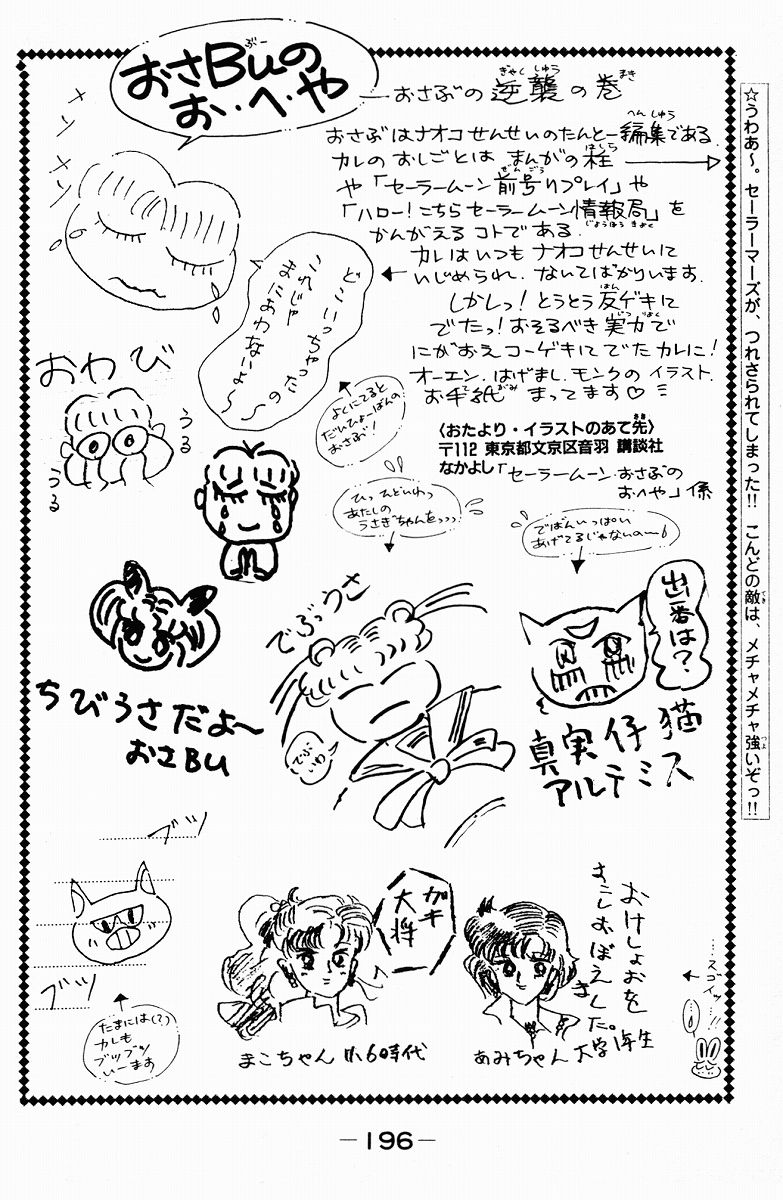 おさBuの
ぶー
お・へ・や
―おさぶの逆襲の巻
ぎゃくしゅう
まき
おさぶはナオコせんせいのたんとー編集である.
へんしゅう
カレのおしごとは まんがの柱
はしら
や「セーラームーン前号リプレイ」や
ぜんごう
「ハロー!こちらセーラームーン情報局」を
じょうほうきょく
かんがえるコトである.
カレはいつもナオコせんせいに
いじめられ.ないてばかりいます.
しかしっ!とうとう反ゲキに
はん
でたっ!おそるべき実力で
じつりょく
にがおえコーゲキにでたカレに!
オーエン.はげまし.モンクのイラスト.
お手紙 まってます♡
てがみ
〈おたより・イラストのあて先〉
さき
〒112 東京都文京区音羽 講談社
なかよし「セーラームーン・おさぶの
おへや」係
☆うわあ〜。セーラーマーズが、つれさられてしまった!! こんどの敵は、メチャメチャ強いぞっ!!
てき
つよ
メソメソ
メソ
どこいっちゃったの
これじゃ
まにあわないよ〜〜
よくにてると
だいひょーばんの
おさぶ!
おわび
うる
うる
ひっひどいわっ
あたしの
うさぎちゃんをっっっ
でばんいっぱい
あげてるじゃないの〜
でぶっうさ
でぶ
いわ
出番は?
真実仔猫
アルテミス
ちびうさだよ〜
おさBU
ブツ
ブツ
たまには(?)
カレも
ブツブツ
いーます
ガキ
大将
まこちゃん 小6時代
おけしょおを
すこしおぼえました。
あみちゃん 大学1年生
……スゴイッ!!
―196―